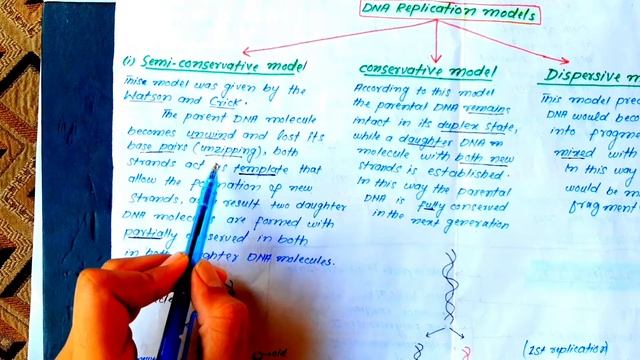 DNA Replication models
(i) Semi-conservative model
This model was given by the
Watson and Crick.
The parent DNA molecule
becomes unwind and lost its
base pairs (unzipping). both
strands act as template that
allow the formation of new
strands, as result two daughter
DNA molecules are formed with
partially conserved in both
in both daughter DNA molecules.
conservative model
According to this model
the parental DNA remains
intact in its duplex state,
while a daughter DNA m
molecule with both new
strands is established.
In this way the parental
DNA is fully conserved
in the next generation
Dispersive m
This model pre
DNA would beco
into fragm
mixed with
In this way
would be m
fragment
(1st replication)